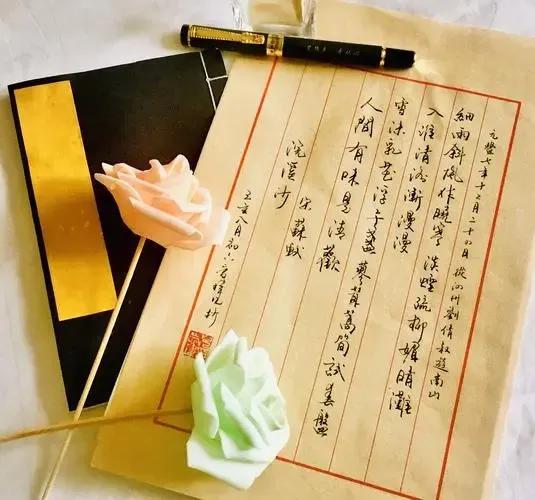 元豐七年十二月二十四日 從泗州劉倩叔遊南山
細雨斜風作曉寒 淡煙疏柳媚晴灘
入淮清洛漸漫漫
雪沫乳花浮午盞 蓼茸蒿筍試春盤
人間有味是清歡
浣溪沙 宋 蘇軾
八月初六 抄